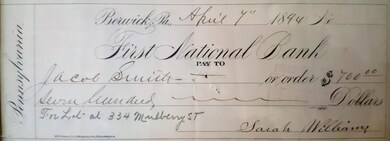 Pennsylvania
Berwick, Pa. April 7th 1894 No
First National Bank
PAY TO
Jacob Smith or order $700.00
Seven Hundred, Dollars
For Lot at 334 Mulberry ST
Sarah Williams